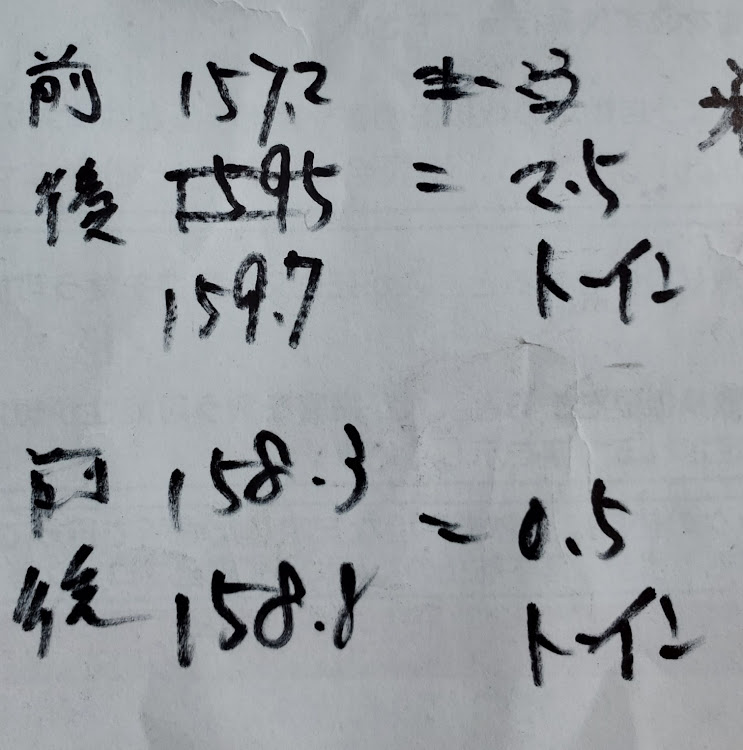 前 157.2
後 159.5 = 2.5
159.7 トーイン
前 158.3 = 0.5
後 158.8 トーイン